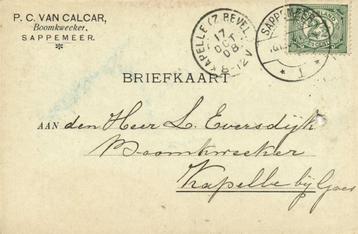 P. C. VAN CALCAR,
Boomkweeker,
SAPPEMEER.
KAPELLE (Z. BEVEL.
17
OCT
08
SAPPEMEER
1
BRIEFKAART
AAN den Heer L. Eversdijk
Boomkweeker
Kapelle bij Goes